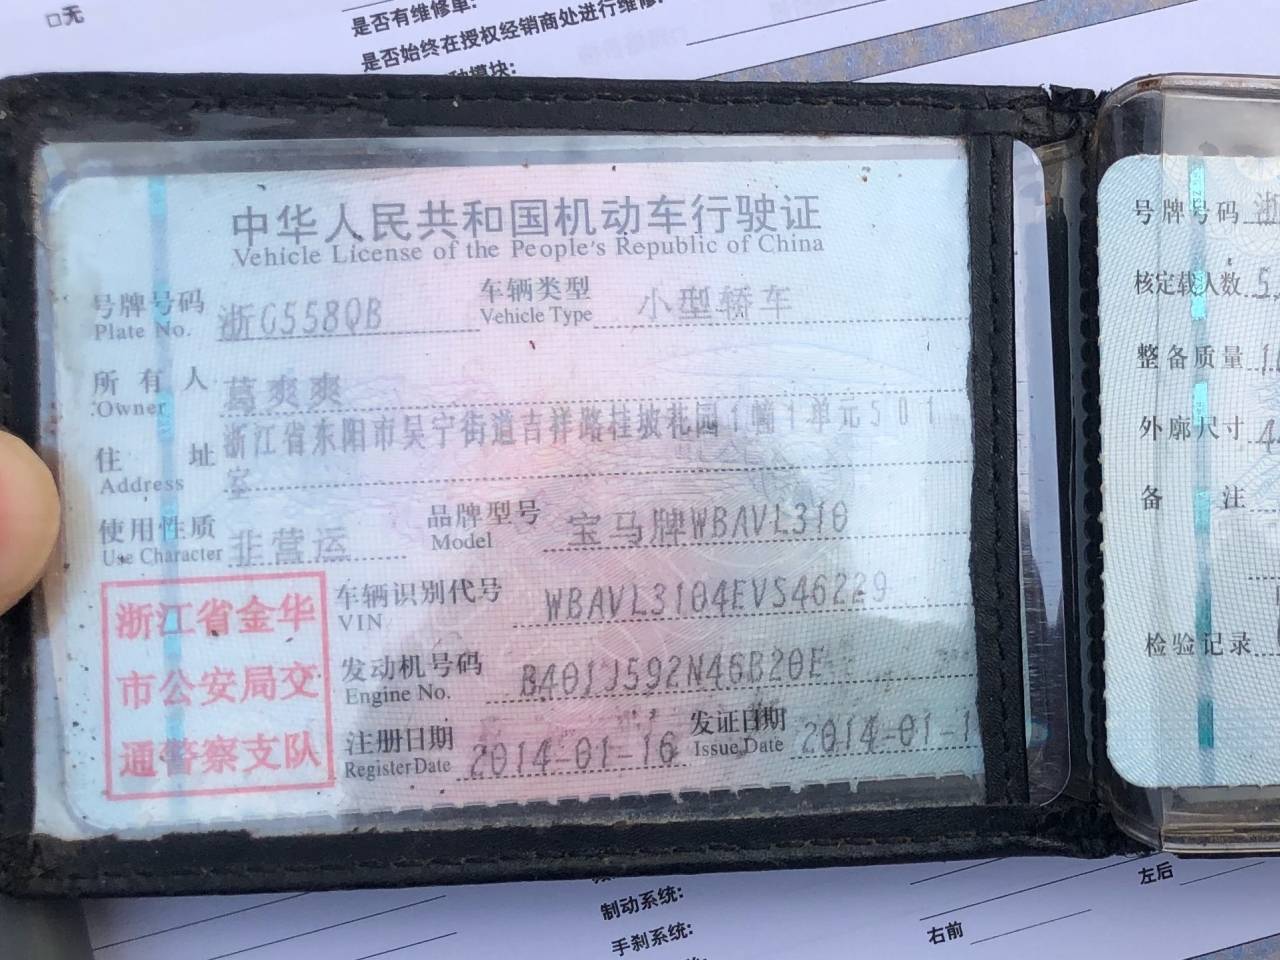 □无
是否有维修单:
是否始终在授权经销商处进行维修:
模块:
中华人民共和国机动车行驶证
Vehicle License of the People's Republic of China
号牌号码 浙G558QB 车辆类型 小型轿车
Plate No. Vehicle Type
所有人 葛爽爽
Owner
住址 浙江省东阳市吴宁街道吉祥路桂坡花园1幢1单元501
Address 室
使用性质 非营运 品牌型号 宝马牌WBAVL310
Use Character Model
浙江省金华
市公安局交
通警察支队
车辆识别代号 WBAVL3104EVS46229
VIN
发动机号码 B4013592N46B20E
Engine No.
注册日期 2014-01-16 发证日期 2014-01-1
Register Date Issue Date
号牌号码 浙
核定载人数 5
整备质量 1
外廓尺寸 4
备注
检验记录
制动系统:
手刹系统:
左后
右前